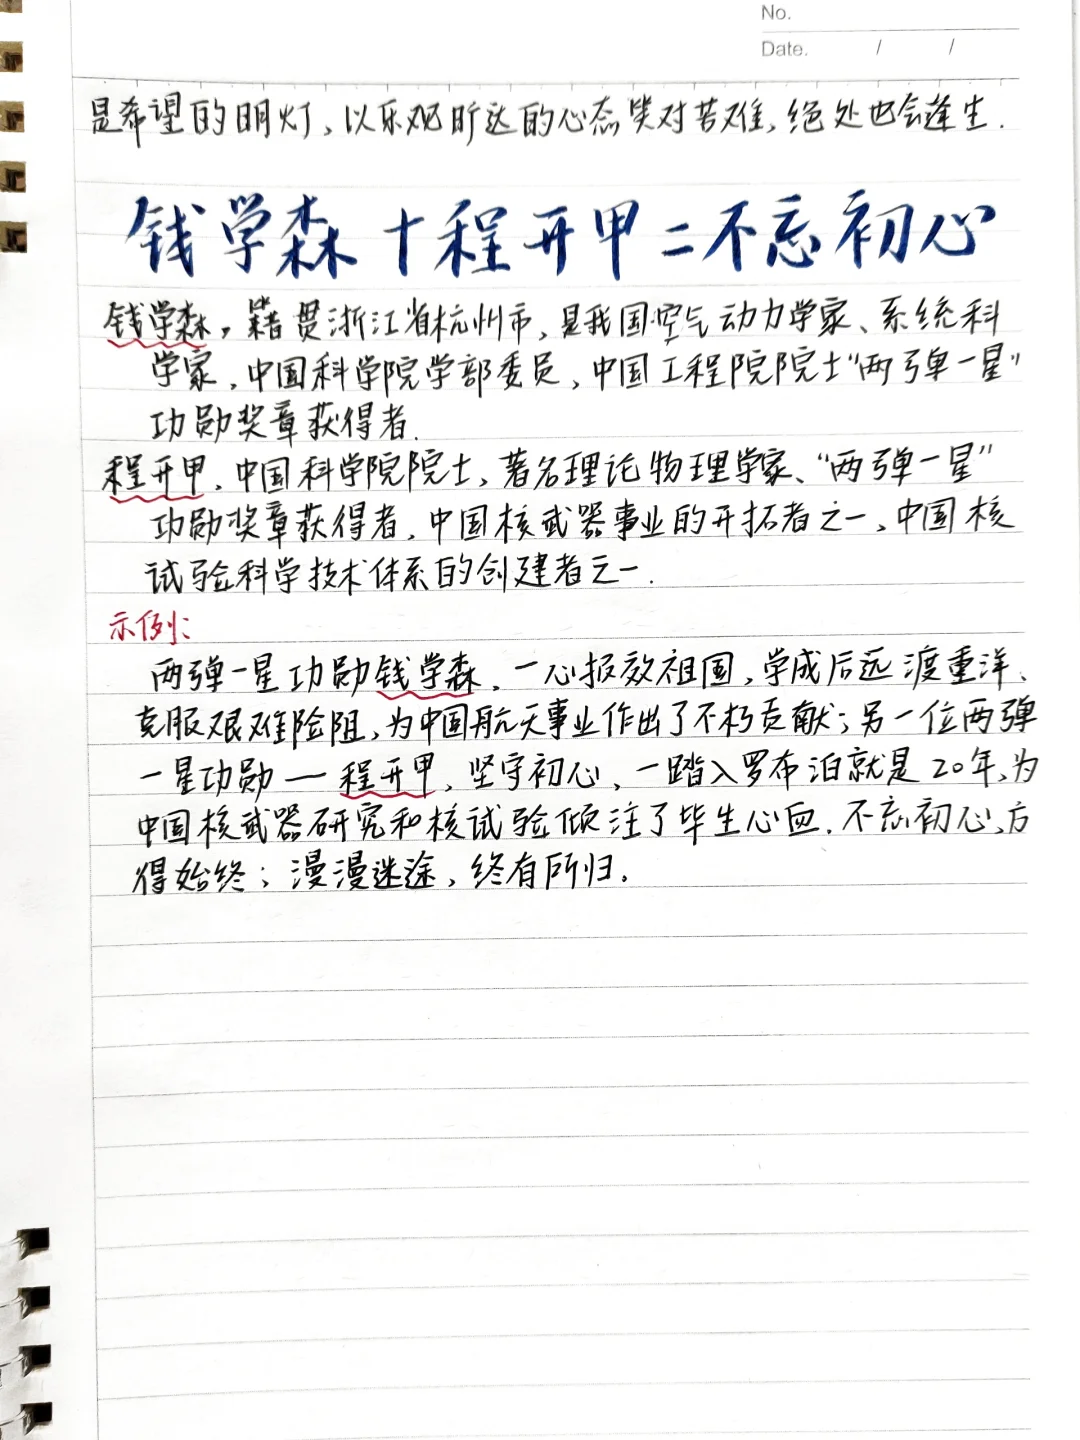 No.
Date. / /
是希望的明灯,以乐观旷达的心态笑对苦难,绝处也会逢生.
钱学森+程开甲=不忘初心
钱学森,籍贯浙江省杭州市,是我国空气动力学家、系统科
学家,中国科学院学部委员,中国工程院院士"两弹一星"
功勋奖章获得者.
程开甲,中国科学院院士,著名理论物理学家、"两弹一星"
功勋奖章获得者,中国核武器事业的开拓者之一,中国核
试验科学技术体系的创建者之一.
示例:
两弹一星功勋钱学森,一心报效祖国,学成后远渡重洋、
克服艰难险阻,为中国航天事业作出了不朽贡献;另一位两弹
一星功勋—程开甲,坚守初心,一踏入罗布泊就是20年,为
中国核武器研究和核试验倾注了毕生心血.不忘初心,方
得始终;漫漫迷途,终有所归.